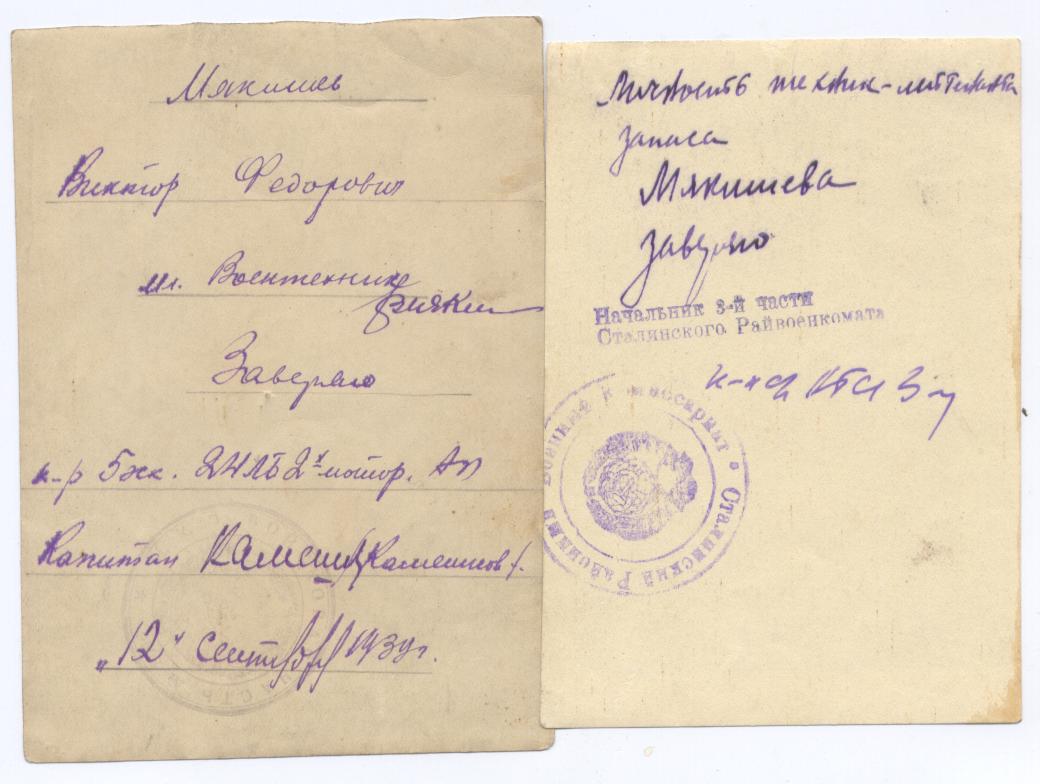 Мякишев
Виктор Федорович
мл. Воентехник
Заверяю
к-р 5жк.
Капитан Камешков
"12" сентября 1939г.
Личность техник-лейтенанта
запаса
Мякишева
заверяю
Начальник 3-й части
Сталинского Райвоенкомата
Сталинский Районный Военный Комиссариат